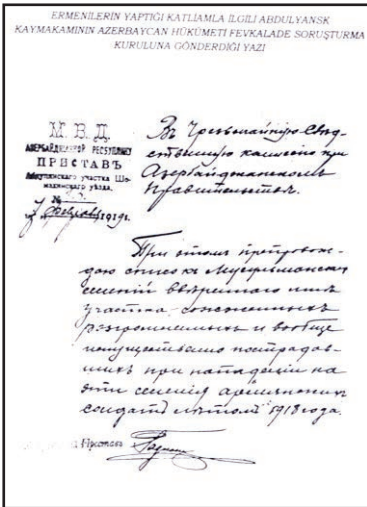 ERMENİLERİN YAPTIĞI KATLİAMLA İLGİLİ ABDULYANSK
KAYMAKAMININ AZERBAYCAN HÜKÜMETİ FEVKALADE SORUŞTURMA
KURULUNA GÖNDERDİĞİ YAZI
М. В. Д.
АЗЕРБАЙДЖАНСКОЙ РЕСПУБЛИКИ
ПРИСТАВЪ
участка Ше-
махинскаго уѣзда.
№
1919г.
Въ Чрезвычайную Слѣд-
ственную комиссію при
Азербайджанскомъ
Правительствѣ.
При этомъ препровож-
даю списокъ Мусульманскихъ
селеній ввѣреннаго мнѣ
участка, сожженныхъ
разгромленныхъ и вообще
имущественно пострадав-
шихъ при нападеніи на
эти селенія армянскихъ
солдатъ лѣтомъ 1918 года.
Приставъ